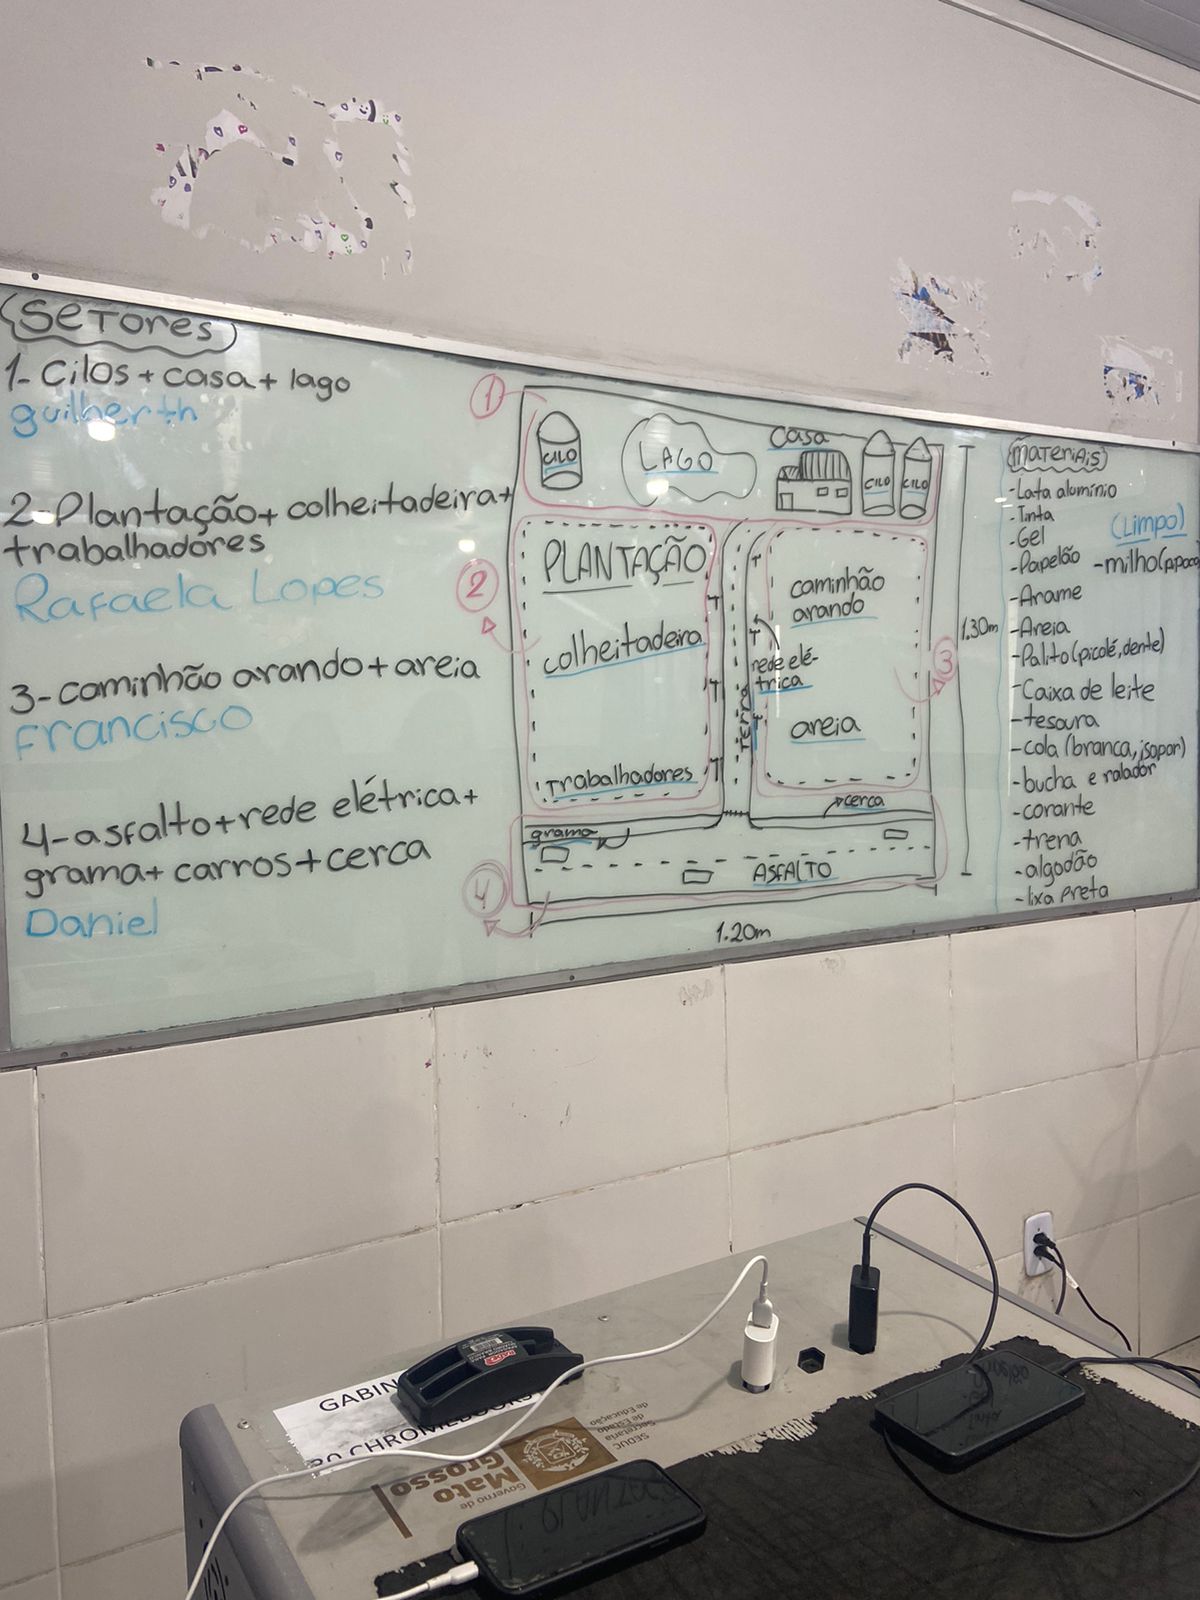 SETORES
1- Cilos + casa + lago
guilherth
2-Plantação+ colheitadeira+
trabalhadores
Rafaela Lopes
3-caminhão arando+areia
Francisco
4-asfalto+rede elétrica+
grama+ carros+cerca
Daniel
1
CILO
LAGO
Casa
CILO
CILO
2
PLANTAÇÃO
colheitadeira
trabalhadores
Terra
rede elé-
trica
caminhão
arando
areia
3
cerca
grama
4
ASFALTO
1.20m
1.30m
materiais
-Lata alumínio
-Tinta
(Limpo)
-Gel
-Papelão
-milho(pipoca)
-Arame
-Areia
-Palito(picolé,dente)
-Caixa de leite
-tesoura
-cola (branca, isopor)
-bucha e ralador
-corante
-trena
-algodão
-lixa preta
GABIN
30 CHROMEBOOKS
Governo de
Mato
Grosso
SEDUC
Secretaria
de Estado
de Educação